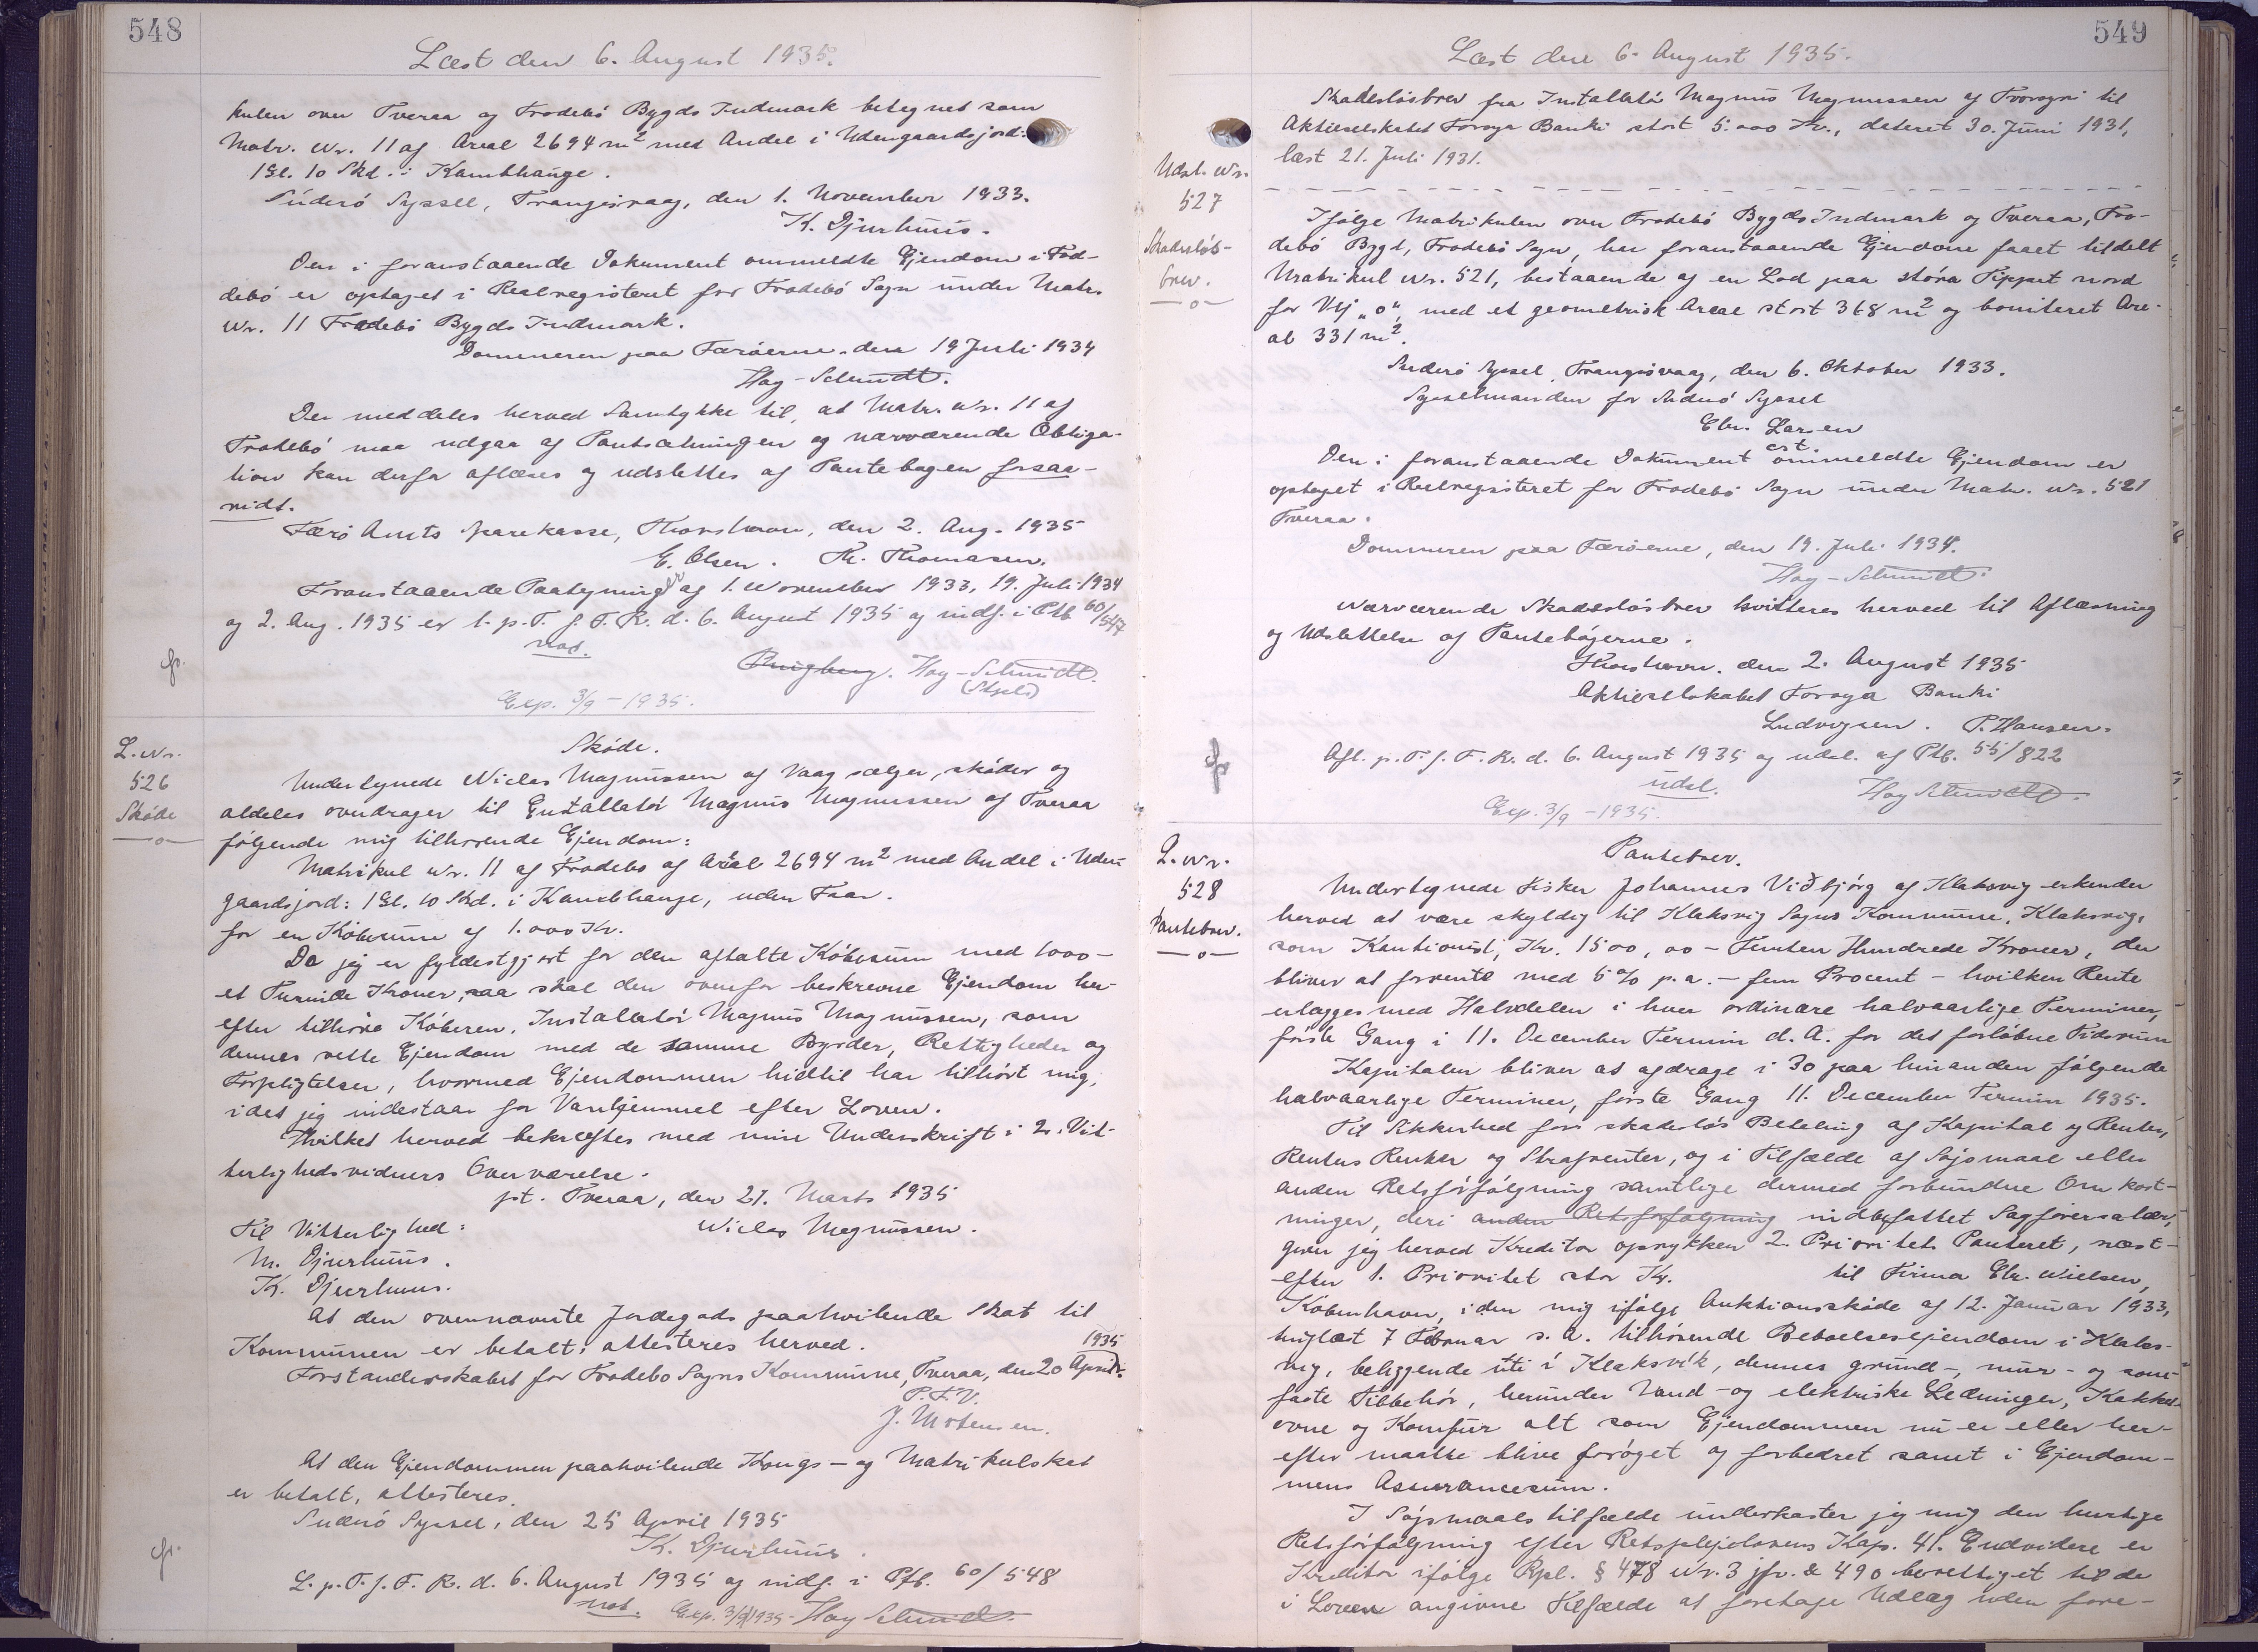 548
Læst den 6. August 1935.
kulen over Tveraa og Frodebö Bygds Indmark betegnet som
Matr. Nr. 11 af Areal 2694 m² med Andel i Udengaardsjord:
1 Gl. 10 Skd. i Kambhauge.
Suderö Syssel, Trangisvaag, den 1. November 1933.
K. Djurhuus.
Den i foranstaaende Dokument ommeldte Ejendom i Fro-
debö er optaget i Realregisteret for Frodebö Sogn under Matr.
Nr. 11 Frodebö Bygds Indmark.
Dommeren paa Færöerne, den 19 Juli 1934
Hay-Schmidt.
Der meddeles herved Samtykke til, at Matr. Nr. 11 af
Frodebö maa udgaa af Pantsætningen og nærværende Obliga-
tion kan derfor aflæses og udslettes af Pantebogen forsaa-
vidt.
Færö Amts Sparekasse, Thorshavn, den 2. Aug. 1935
E. Olsen. Th. Thomasen.
Foranstaaende Paategninger af 1. November 1933, 19. Juli 1934
og 2. Aug. 1935 er l. p. T. f. F. R. d. 6. August 1935 og indf. i Ptb 60/547
not.
Hay-Schmidt.
Exp. 3/9 - 1935.
L. Nr.
526
Skøde
Skøde.
Undertegnede Niclas Magnussen af Vaag sælger, skøder og
aldeles overdrager til Installatör Magnus Magnussen af Tveraa
følgende mig tilhørende Ejendom:
Matrikul Nr. 11 af Frodebo af Areal 2694 m² med Andel i Uden-
gaardsjord: 1 Gl. 10 Skd. i Kambhauge, uden Faar.
for en Købesum af 1.000 Kr.
Da jeg er fyldestgjort for den aftalte Købesum med 1000 -
et Tusinde Kroner, saa skal den ovenfor beskrevne Ejendom her-
efter tilhøre Køberen, Installatör Magnus Magnussen, som
dennes rette Ejendom med de samme Byrder, Rettigheder og
Forpligtelser, hvormed Ejendommen hidtil har tilhørt mig,
idet jeg indestaar for Vanhjemmel efter Loven.
Hvilket herved bekræftes med min Underskrift i 2. Vit-
terlighedsvidners Overværelse.
pt. Tveraa, den 21. Marts 1935
Til Vitterlighed: Niclas Magnussen.
M. Djurhuus.
K. Djurhuus.
At den ovennævnte Jordegods paahvilende Skat til
Kommunen er betalt, attesteres herved.
Forstanderskabet for Frodebo Sogns Kommune, Tveraa, den 20 April 1935
P. F. V.
J. Mortensen.
At den Ejendommen paahvilende Kongs- og Matrikulskat
er betalt, attesteres.
Suderö Syssel, den 25 April 1935
K. Djurhuus.
L. p. T. f. F. R. d. 6. August 1935 og indf. i Ptb. 60/548
not. Exp. 3/9 1935 - Hay Schmidt.
549
Læst den 6. August 1935.
Udsl. Nr.
527
Skadesløs-
brev.
Skadesløsbrev fra Installatör Magnus Magnussen af Tvoroyri til
Aktieselskabet Føroya Banki stort 5.000 Kr., dateret 30. Juni 1931,
læst 21. Juli 1931.
Ifølge Matrikulen over Frodebö Bygds Indmark og Tveraa, Fro-
debö Bygd, Frodebö Sogn, har foranstaaende Ejendom faaet tildelt
Matrikul Nr. 521, bestaaende af en Lod paa stóra Tippet nord
for Vej "o", med et geometrisk Areal stort 368 m² og boniteret Are-
al 331 m².
Suderö Syssel, Trangisvaag, den 6. Oktober 1933.
Sysselmanden for Suderö Syssel
Chr. Larsen
cst.
Den i foranstaaende Dokument ommeldte Ejendom er
optaget i Realregisteret for Frodebö Sogn under Matr. Nr. 521
Tveraa.
Dommeren paa Færöerne, den 19. Juli 1934.
Hay-Schmidt.
Nærværende Skadesløsbrev kvitteres herved til Aflæsning
og Udslettelse af Pantebøgerne.
Thorshavn, den 2. August 1935
Aktieselskabet Føroya Banki
Ludvigsen. P. Hansen.
Afl. p. T. f. F. R. d. 6. August 1935 og udsl. af Ptb. 55/822
udsl. Hay Schmidt.
Exp. 3/9 - 1935.
L. Nr.
528
Pantebrev.
Pantebrev.
Undertegnede Fisker Johannes Viðbjörg af Klaksvig erkender
herved at være skyldig til Klaksvig Sogns Kommune, Klaksvig,
som Kautionist, Kr. 1500,00 - Femten Hundrede Kroner, der
bliver at forrente med 5% p.a. - fem Procent - hvilken Rente
erlægges med Halvdelen i hver ordinære halvaarlige Terminer,
første Gang i 11. December Termin d. A. for det forløbne Tidsrum
Kapitalen bliver at afdrage i 30 paa hinanden følgende
halvaarlige Terminer, første Gang 11. December Termin 1935.
Til Sikkerhed for skadesløs Betaling af Kapital og Renter,
Renters Renter og Strafrenter, og i Tilfælde af Søjsmaal eller
anden Retsforfølgning samtlige dermed forbundne Omkost-
ninger, deri anden Retsforfølgning indbefattet Sagførersalær,
giver jeg herved Kreditor oprykkende 2. Prioritets Panteret, næst-
efter 1. Prioritet stor Kr. til Firma Chr. Nielsen,
København, i den mig ifølge Auktionsskøde af 12. Januar 1933,
tinglæst 7 Februar s. A. tilhørende Beboelsesejendom i Klaks-
vig, beliggende úti í Klaksvík, dennes grund-, mur- og søm-
faste Tilbehør, herunder Vand- og elektriske Ledninger, Kakkel-
ovne og Komfur alt som Ejendommen nu er eller her-
efter maatte blive forøget og forbedret samt i Ejendom-
mens Assurancesum.
I Søjsmaals tilfælde underkaster jeg mig den hurtige
Retsforfølgning efter Retsplejelovens Kap. 41. Endvidere er
Kreditor ifølge Rpl. § 478 Nr. 3 jfr. & 490 berettiget til de
i Loven angivne Tilfælde at foretage Udlæg uden fore-